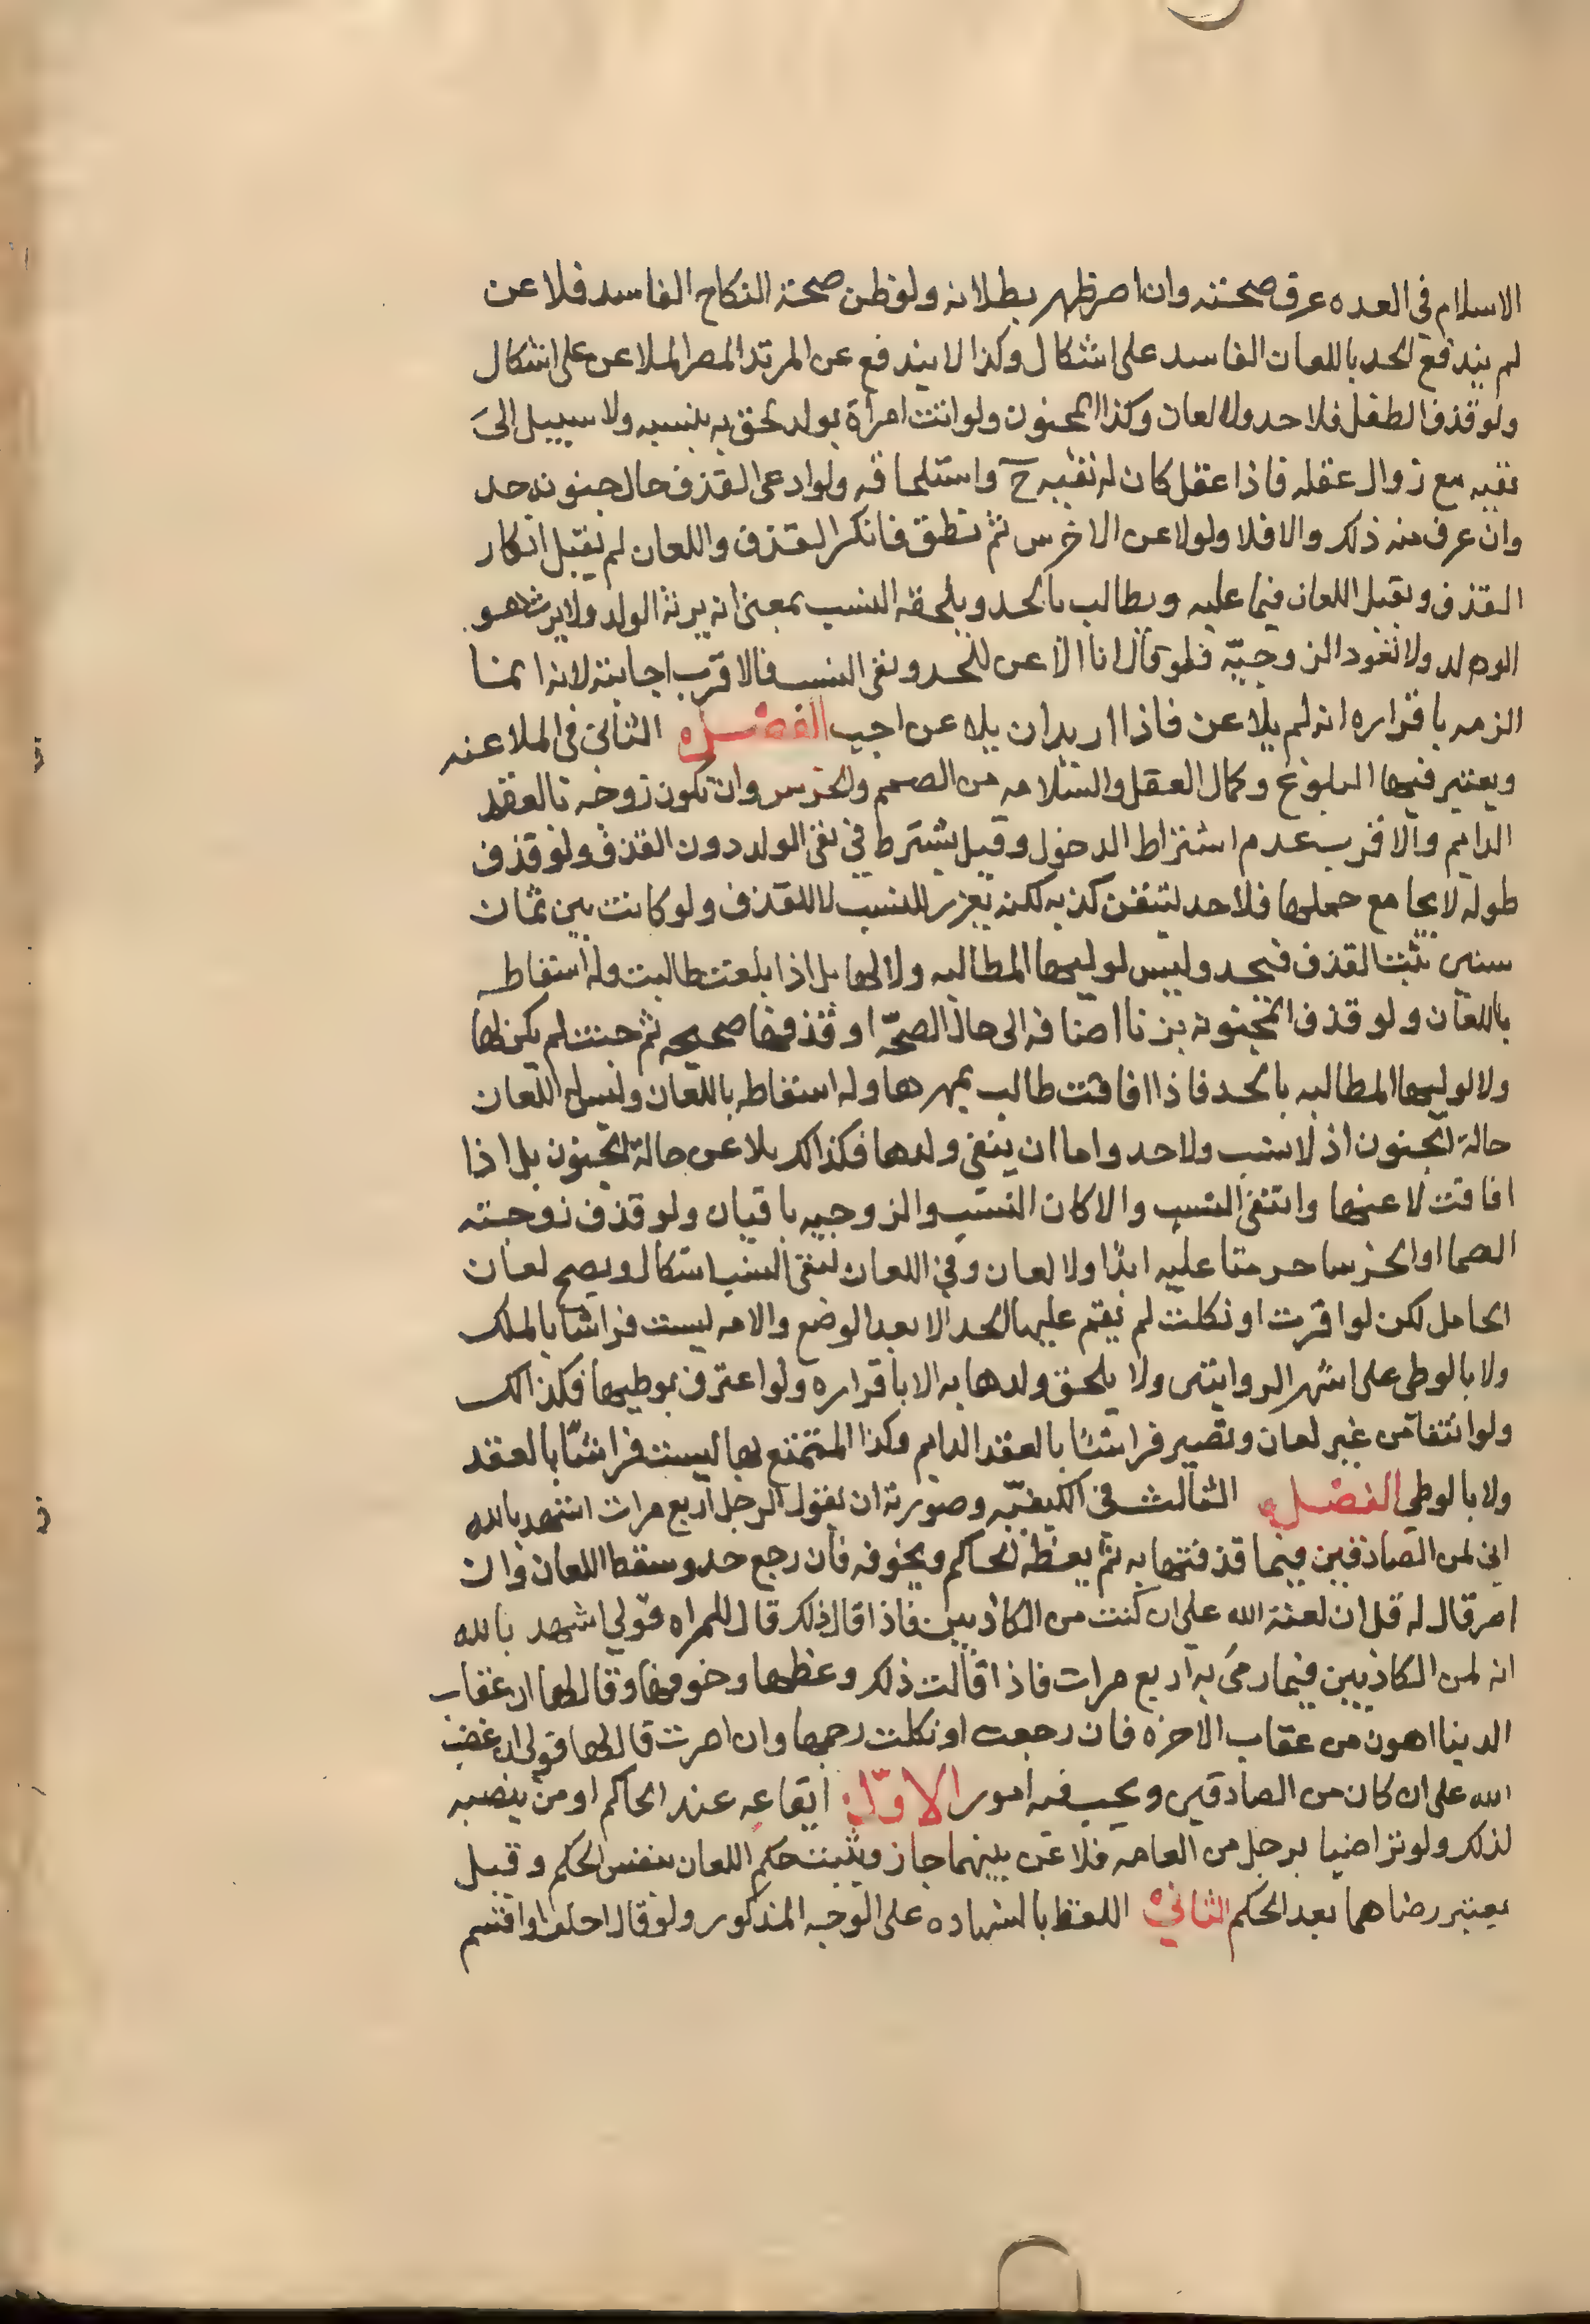 الاسلام في العده عرف صحته وان اصر ظهر بطلانه ولو ظن صحة النكاح الفاسد فلاعن
لم يندفع الحد باللعان الفاسد على اشكال وكذا لا يندفع عن المرتد المصر الملاعن على اشكال
ولو قذف الطفل فلا حد ولا لعان وكذا المجنون ولو اتت امراة بولد لحق به بنسبه ولا سبيل الى
نفيه مع زوال عقله فاذا عقل كان له نفيه ح واستلحاقه ولو ادعى القذف حال جنونه حد
وان عرف منه ذلك والا فلا ولو لاعن الاخرس ثم نطق فانكر القذف واللعان لم يقبل انكار
القذف ويقبل اللعان فيما عليه ويطالب بالحد ويلحقه النسب بمعنى انه يرثه الولد ولا يرث هو
الولد ولا تعود الزوجيّه فلو قال انا الاعن للحد ونفى النسب فالاقرب اجابته لانه انما
الزمه باقراره انه لم يلاعن فاذا اريد ان يلاعن اجيب الفصل الثاني في الملاعنه
ويعتبر فيها البلوغ وكمال العقل والسلامه من الصمم والخرس وان تكون زوجه بالعقد
الدايم والاقرب عدم اشتراط الدخول وقيل يشترط في نفى الولد دون القذف ولو قذف
طوله لا يجامع حملها فلا حد لتيقن كذبه لكنه يعزر للسب لا للقذف ولو كانت بين ثمان
سنين ثبت القذف فيحد وليس لوليها المطالبه ولا لها بل اذا بلغت طالبت وله اسقاطه
باللعان ولو قذف المجنونه بزنا اضافه الى حال الصحّه او قذفها صحيحه ثم جنت لم يكن لها
ولا لوليها المطالبه بالحد فاذا افاقت طالب بمهرها وله اسقاطه باللعان وليس له اللعان
حالة الجنون اذ لا نسب ولا حد واما ان ينفى ولدها فكذلك بلاعن حالة الجنون بل اذا
افاقت لاعنها وانتفى النسب والا كان النسب والزوجيه باقيان ولو قذف زوجته
الصما او الخرسا حرمتا عليه ابدا ولا لعان وفي اللعان لنفى النسب اشكال ويصح لعان
الحامل لكن لو اقرت او نكلت لم يقم عليها الحد الا بعد الوضع والامه ليست فراشا بالملك
ولا بالوطى على اشهر الروايتين ولا يلحق ولدها به الا باقراره ولو اعترف بوطيها فكذلك
ولو انتفا من غير لعان وتصير فراشا بالعقد الدايم وكذا المتمتع بها ليست فراشا بالعقد
ولا بالوطى الفصل الثالث في الكيفيّه وصورته ان يقول الرجل اربع مرات اشهد بالله
اني لمن الصادقين فيما قذفتها به ثم يعظه الحاكم ويخوفه فان رجع حد وسقط اللعان وان
اصر قال له قل ان لعنة الله على ان كنت من الكاذبين فاذا قال ذلك قال للمراه قولي اشهد بالله
انه لمن الكاذبين فيما رمى به اربع مرات فاذا قالت ذلك وعظها وخوفها وقال لها ان عقاب
الدينا اهون من عقاب الاخره فان رجعت او نكلت رجمها وان اصرت قال لها قولى ان غضب
الله على ان كان من الصادقين ويجب فيه امور الاوّل ايقاعه عند الحاكم او من ينصبه
لذلك ولو تراضيا برجل من العامه فلاعن بينهما جاز ويثبت حكم اللعان بنفس الحكم وقيل
يعتبر رضاهما بعد الحكم الثاني اللفظ بالشهاده على الوجه المذكور ولو قال احلف او اقسم